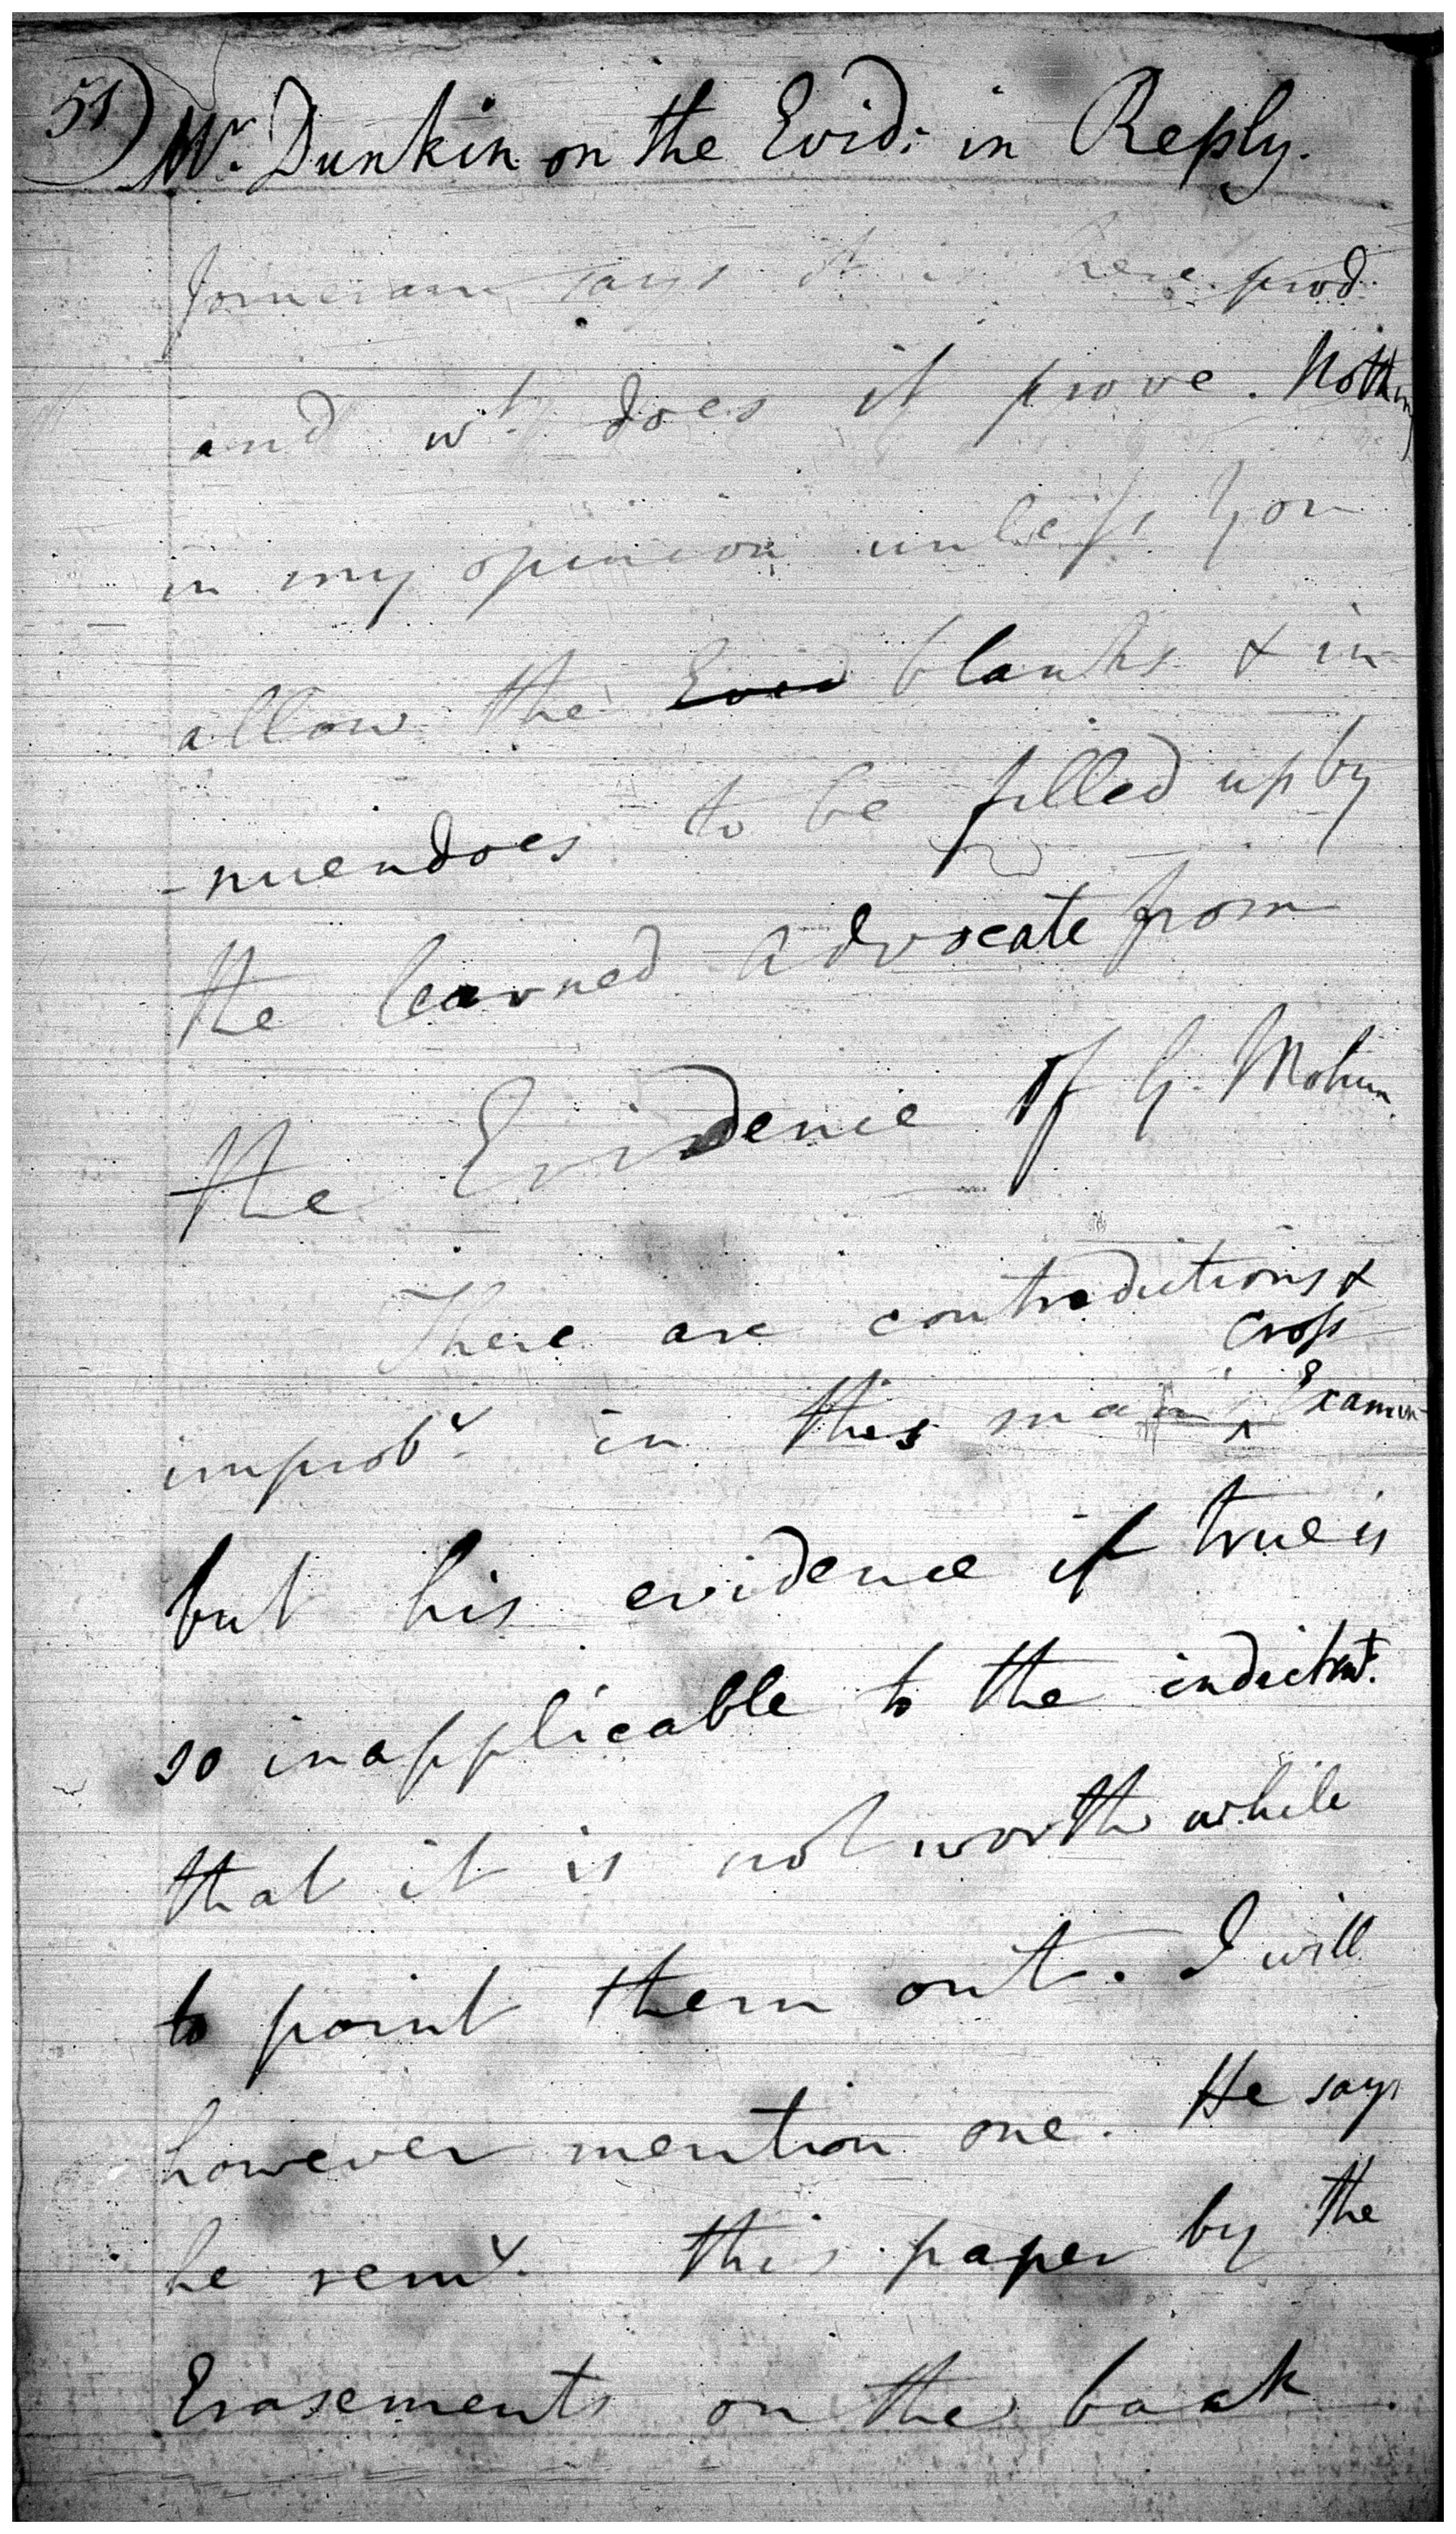 51) Mr. Dunkin on the Evid: in Reply.
says it is here prod.
and wt. does it prove. Nothing
in my opinion unless You
allow the Evid blanks & in
-nuendoes to be filled up by
the learned advocate from
the Evidence of G. Mohun.
There are contradictions &
cross
improby. in this man's Examin
but his evidence if true is
so inapplicable to the indictmt.
that it is not worth while
to point them out. I will
however mention one. He says
he remd. this paper by the
Erasements on the back